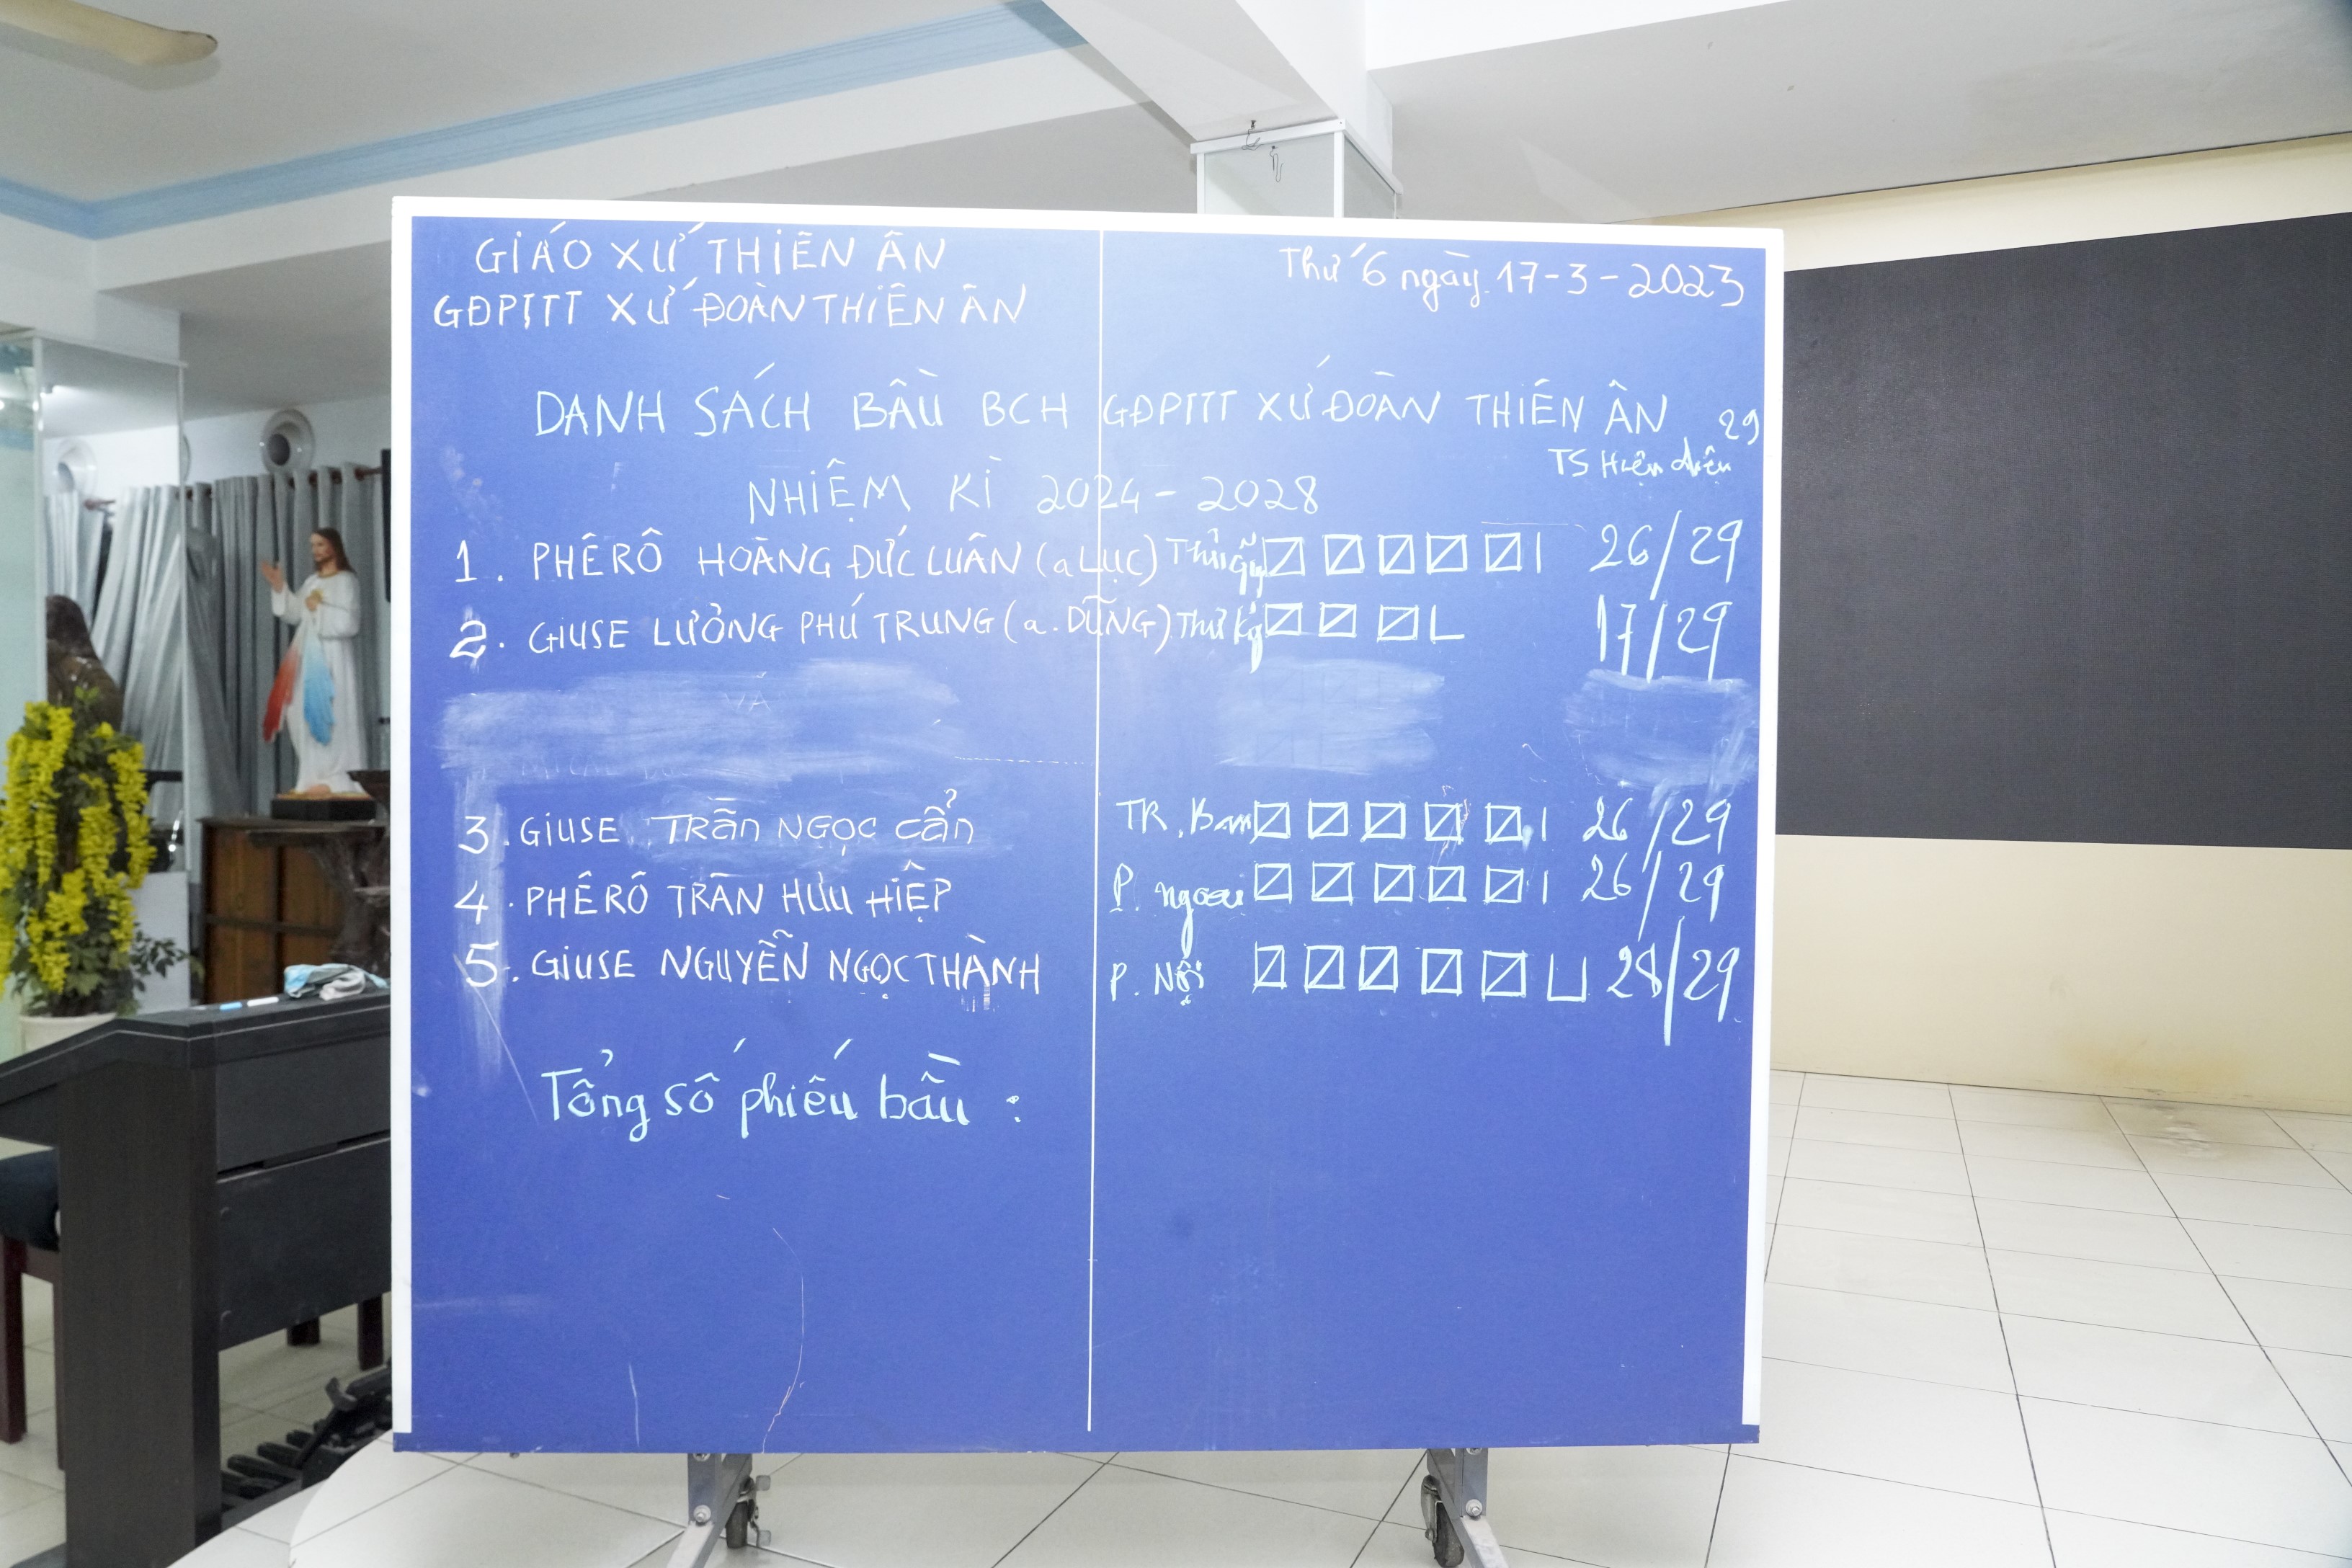 GIÁO XỨ THIÊN ÂN
GĐPTTT XỨ ĐOÀN THIÊN ÂN
Thứ 6 ngày 17-3-2023
DANH SÁCH BẦU BCH GĐPTTT XỨ ĐOÀN THIÊN ÂN
29
TS Hiện diện
NHIỆM KÌ 2024-2028
1. PHÊRÔ HOÀNG ĐỨC LUÂN (a LỤC) Thủ Qũy 26/29
2. GIUSE LƯỞNG PHÚ TRUNG (a. DŨNG) Thư Ký 17/29
3. GIUSE TRẦN NGỌC CẨN TR. Ban 26/29
4. PHÊRÔ TRẦN HỮU HIỆP P. ngoại 26/29
5. GIUSE NGUYỄN NGỌC THÀNH P. Nội 28/29
Tổng số phiếu bầu :